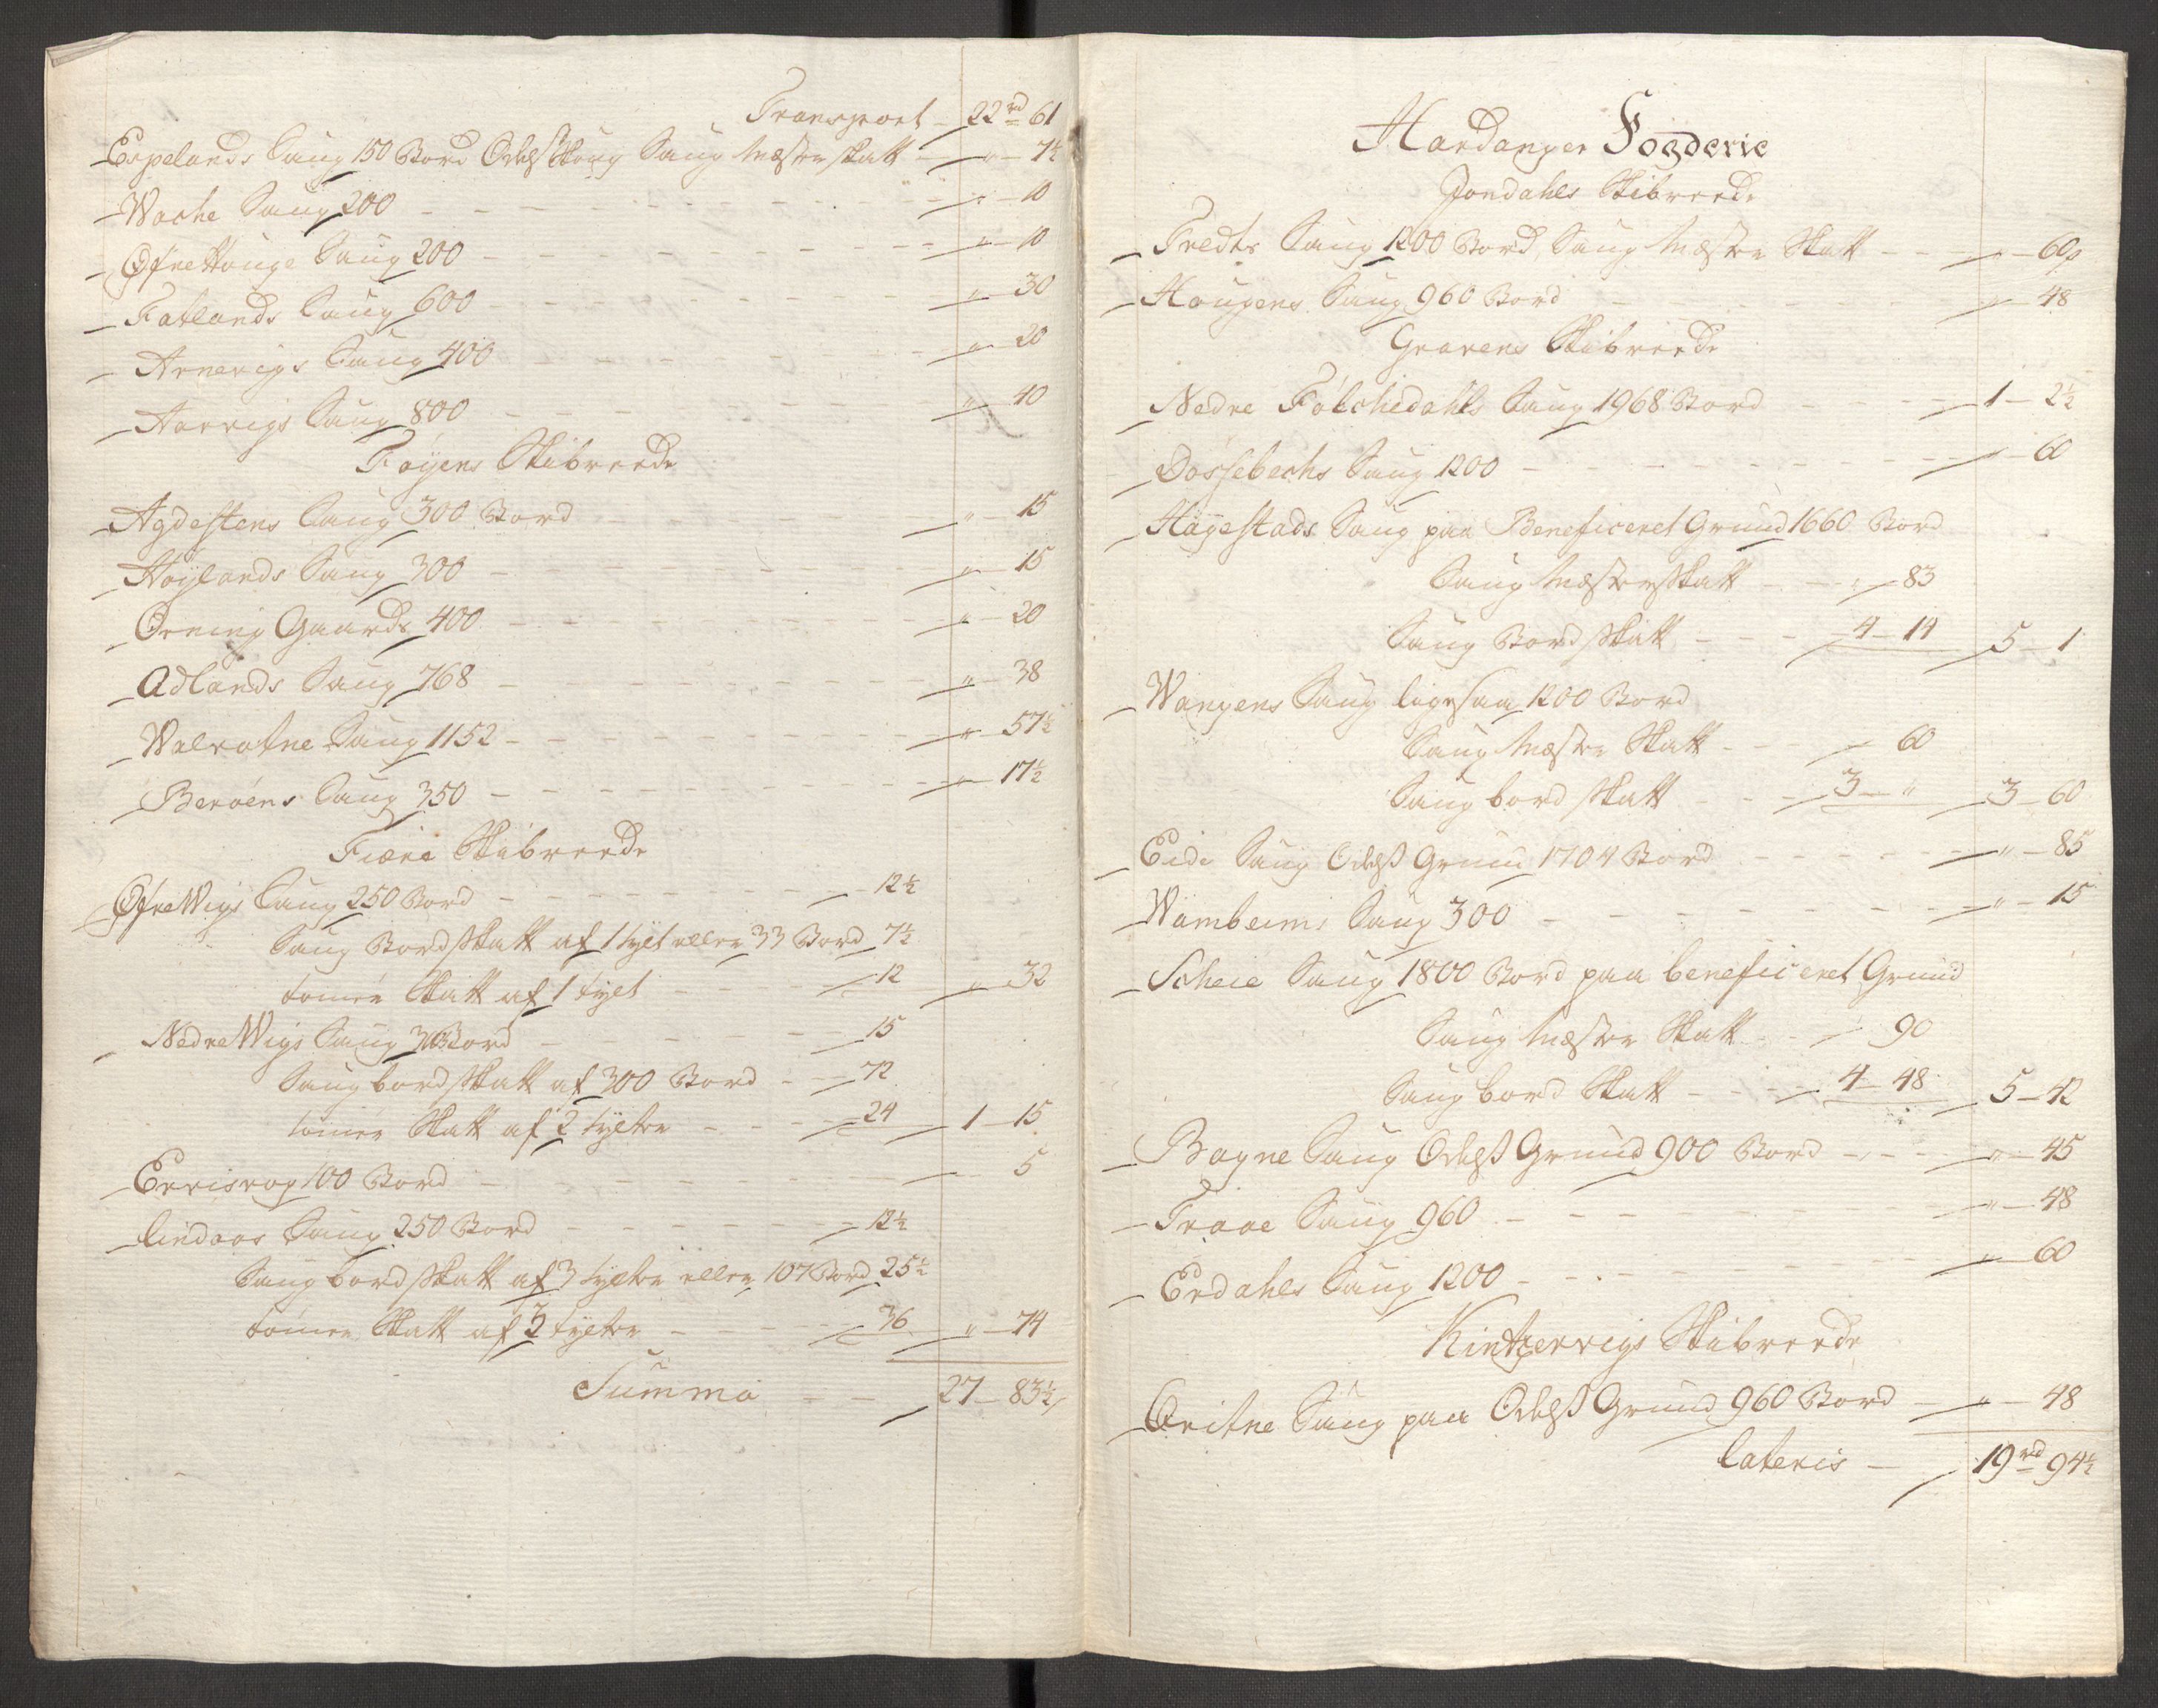 Transport 22 rd 61
Espelands Saug 150 Bord Odelsskoug Saug Mesterskatt " 7½
Wache Saug 200 " 10
Øfre Houge Saug 200 " 10
Fatlands Saug 600 " 30
Arnevigs Saug 400 " 20
Aarvigs Saug 800 " 40
Føyens Skibreede
Agdestens Saug 300 Bord " 15
Høylands Saug 300 " 15
Orning Gaards 400 " 20
Adlands Saug 768 " 38
Walvatne Saug 1152 " 57½
Berøens Saug 350 " 17½
Fiære Skibreede
Øfre Wigs Saug 250 Bord 12½
Saug Bordskatt af 1 tylt eller 33 Bord 7½
tømer Skatt af 1 tylt 12 " 32
Nedre Wigs Saug 300 Bord 15
Saugbordskatt af 300 Bord 72
tømer Skatt af 2 tylter 24 1 15
Erris 100 Bord 5
Lindaas Saug 250 Bord 12½
Saugbordskatt af 3 tylter eller 107 Bord 25½
tømer Skatt af 3 tylter 36 " 74
Summa 27 83½
Hardanger Fogderie
Jondahls Skibreede
Tredts Saug 1200 Bord, Saug Mester Skatt " 60
Hougens Saug 960 Bord " 48
Gravens Skibreede
Nedre Følchedahls Saug 1968 Bord 1 2½
Døssebechs Saug 1200 " 60
Hagestads Saug paa Beneficeret Grund 1660 Bord
Saug Mesterskatt " 83
Saug Bordskatt 4 14 5 1
Wangens Saug ligesaa 1200 Bord
Saug Mester Skatt 60
Saugbordskatt 3 " 3 60
Eide Saug Odels Grund 1704 Bord " 85
Wambeims Saug 300 " 15
Scheie Saug 1800 Bord paa beneficeret Grund
Saug Mester Skatt 90
Saugbord Skatt 4 48 5 42
Bagne Saug Odels Grund 900 Bord " 45
Traae Saug 960 " 48
Erdahls Saug 1200 " 60
Kintzervigs Skibreede
Qvitne Saug paa Odels Grund 960 Bord " 48
Lateris 19 rd 94½